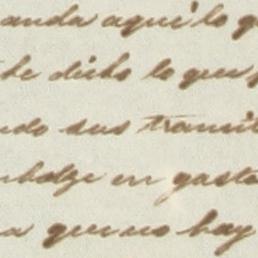 anda aqui lo q
he dicho lo que
ndo sus transi
en gasta
a que no hay